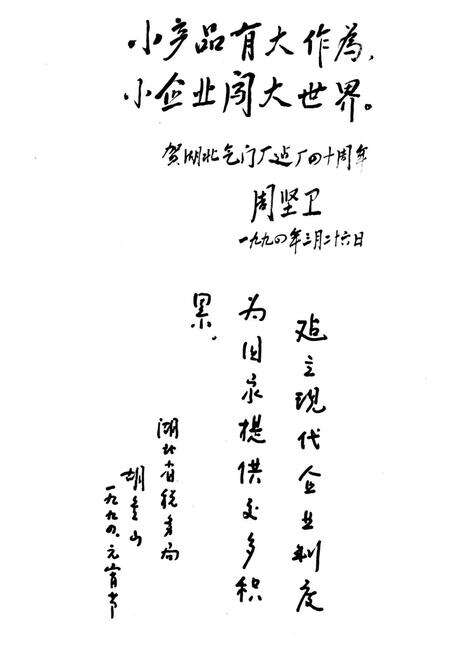 小产品有大作为，
小企业闯大世界。
贺湖北气门厂建厂四十周年
周坚卫
一九九四年三月二十六日
建立现代企业制度
为国家提供更多积
累，
湖北省税务局
胡金山
一九九四、元宵节